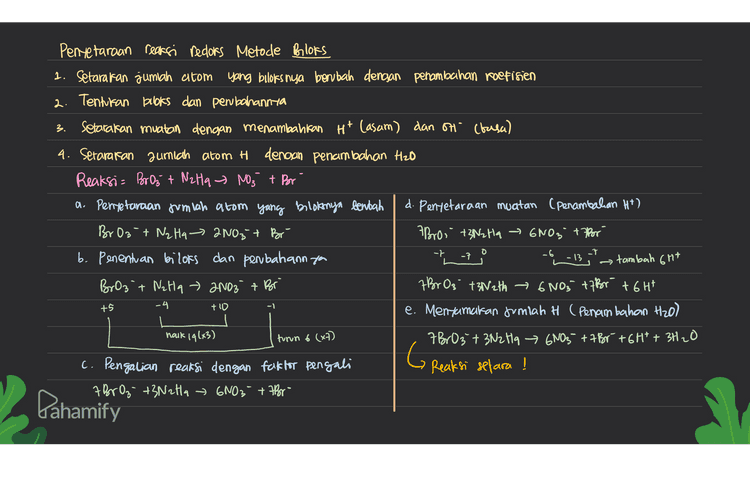 Penyetaraan reaksi redoks Metode Biloks
1. Setarakan jumlah atom yang biloksnya berubah dengan penambahan koefisien
2. Tentukan biloks dan perubahannya
3. Setarakan muatan dengan menambahkan H⁺ (asam) dan OH⁻ (basa)
4. Setarakan jumlah atom H dengan penambahan H₂O
Reaksi = BrO₃⁻ + N₂H₄ → NO₃⁻ + Br⁻
a. Penyetaraan jumlah atom yang biloksnya berubah
BrO₃⁻ + N₂H₄ → 2NO₃⁻ + Br⁻
b. Penentuan biloks dan perubahannya
BrO₃⁻ + N₂H₄ → 2NO₃⁻ + Br⁻
+5 -4 +10 -1
naik 14 (x3)
turun 6 (x7)
c. Pengalian reaksi dengan faktor pengali
7BrO₃⁻ + 3N₂H₄ → 6NO₃⁻ + 7Br⁻
d. Penyetaraan muatan (penambahan H⁺)
7BrO₃⁻ + 3N₂H₄ → 6NO₃⁻ + 7Br⁻
-7 0 -6 -7
-7 -13 → tambah 6H⁺
7BrO₃⁻ + 3N₂H₄ → 6NO₃⁻ + 7Br⁻ + 6H⁺
e. Menyamakan jumlah H (Penambahan H₂O)
7BrO₃⁻ + 3N₂H₄ → 6NO₃⁻ + 7Br⁻ + 6H⁺ + 3H₂O
Reaksi setara !
Pahamify